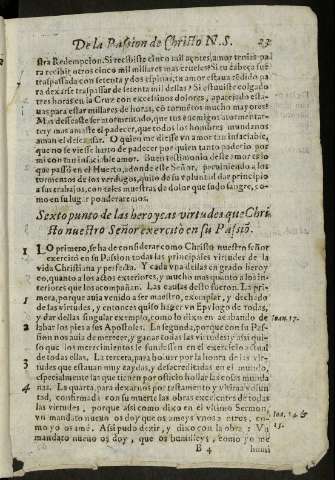 De la Passion de Christo N. S. 23
stra Redempcion. Si recibiste cinco mil açotes, amor tenias pa
ra recibir otros cinco mil millares mas crueles? Si tu cabeça fue
traspassada con setenta y dos espinas, tu amor estaua rēdido pa
ra dexarse traspassar de setenta mil dellas? Si estuuiste colgado
tres horas en la Cruz con excessiuos dolores, aparejado esta-
uas para estar millares de horas, cō tormētos mucho mayores?
Mas desseaste ser atormentado, que tus enemigos atormentar-
te, y mas amaste el padecer, que todos los hombres mundanos
aman el descansar. O quien me diesse vn amor tan insaciable,
que no se viesse harto de padecer por quien tanto padecio por
mi con tan insaciable amor. Buen testimonio deste amor es lo
que passò en el Huerto, adonde este Señor, preuiniendo a los
tormentos de los verdugos, quiso de su voluntad dar principio
a sus trabajos, con tales muestras de dolor que sudo sangre, co-
mo en su lugar ponderaremos.
Sexto punto de las heroycas virtudes que Chri
sto nuestro Señor exercitò en su Passiō.
1 LO primero, se ha de considerar como Christo nuestro señor
exercitò en su Passion todas las principales virtudes de la
vida Christiana y perfecta. Y cada vna dellas en grado heroy
co, quanto a los actos exteriores, y mucho mas quanto a los in-
teriores que los acompañan. Las causas desto fueron. La pri-
1 mera, porque auia venido a ser maestro, exemplar, y dechado
de las virtudes, y entonces quiso hazer vn Epylogo de todas,
y dar dellas singular exemplo, como lo dixo en acabando de
2 labar los pies a sus Apostoles. La segunda, porque con su Pas- Ioan. 17.
sion nos auia de merecer, y ganar todas las virtudes: y assi qui-
so que los merecimientos se fundassen en el exercicio actual
de todas ellas. La tercera, para boluer por la honra de las vir-
3 tudes que estauan muy caydas, y desacreditadas en el mundo,
especialmente las que tienen por oficio hollar las cosas munda
4 nas. La quarta, para dexarnos por testamento y vltima volun
tad, confirmada con su muerte las obras excelentes de todas
las virtudes, porque assi como dixo en el vltimo Sermon,
vn mandato nueuo os doy que os ameys vnos a otros, co- Ioa. 14. &
mo yo os amè. Assi pudo dezir, y dixo con la obra: Vn 15.
mandato nueuo os doy, que os humilleys, como yo me
B 4 humi